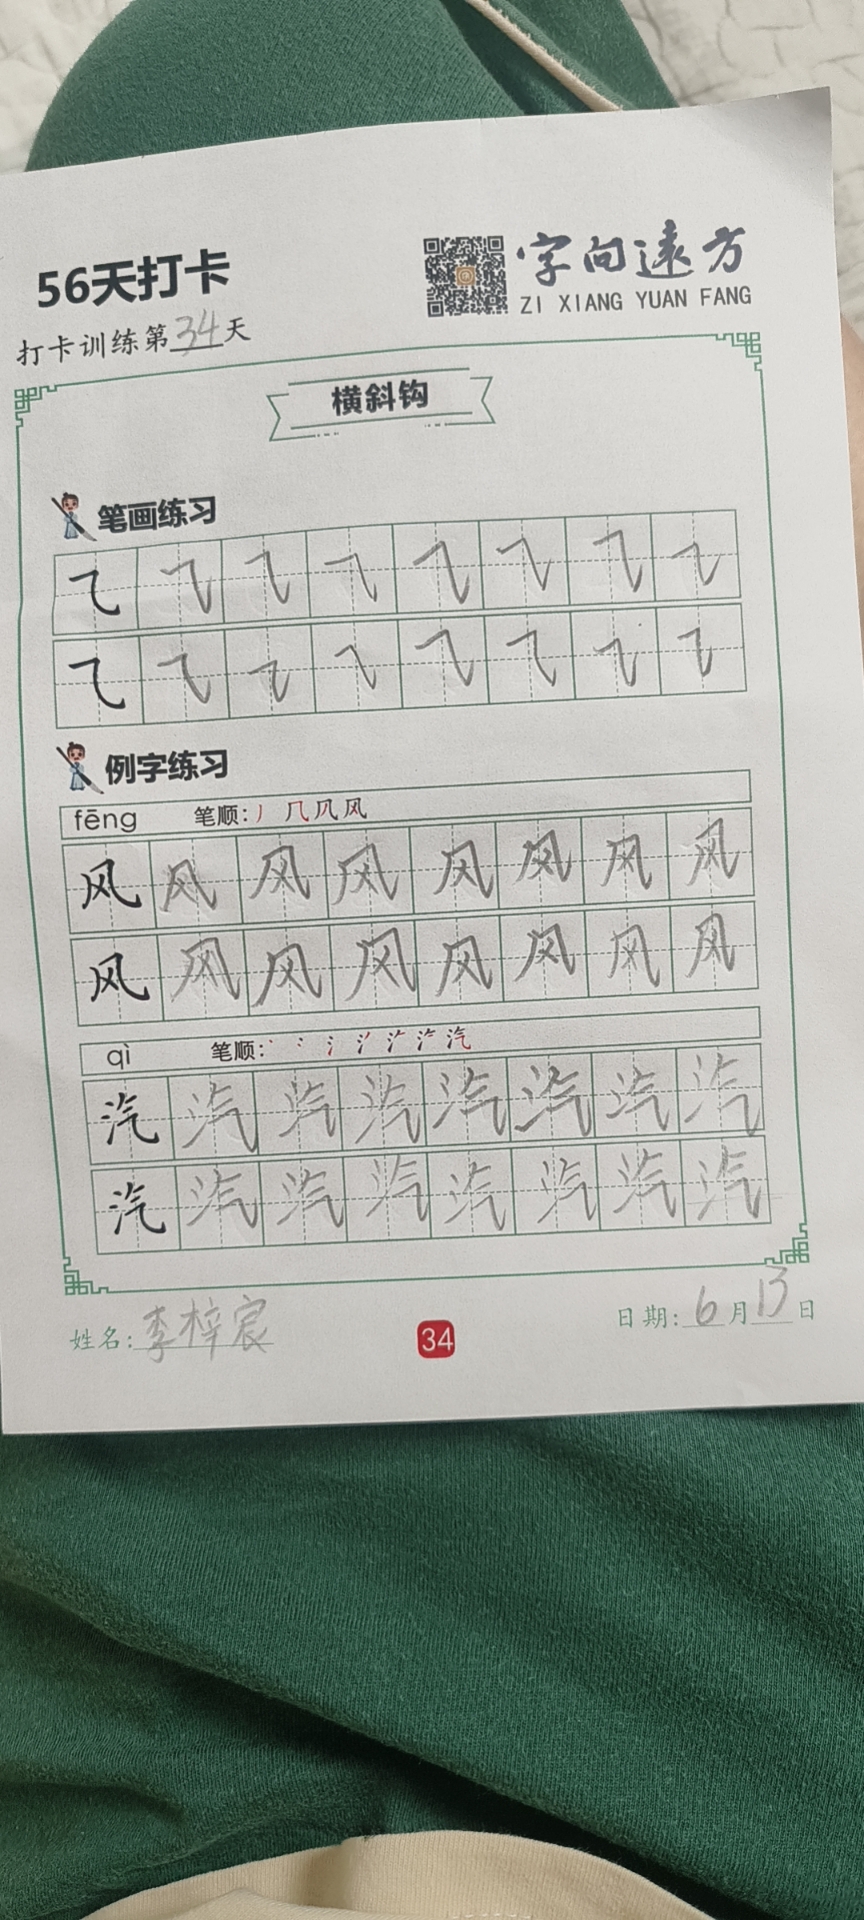 56天打卡
字向遠方
ZI XIANG YUAN FANG
打卡训练第34天
横斜钩
笔画练习
⺄ ⺄ ⺄ ⺄ ⺄ ⺄ ⺄ ⺄
⺄ ⺄ ⺄ ⺄ ⺄ ⺄ ⺄ ⺄
例字练习
fēng 笔顺: 丿 几 凨 风
风 风 风 风 风 风 风 风
风 风 风 风 风 风 风 风
qì 笔顺: 汽
汽 汽 汽 汽 汽 汽 汽 汽
汽 汽 汽 汽 汽 汽 汽 汽
姓名: 李梓宸
34
日期: 6月13日